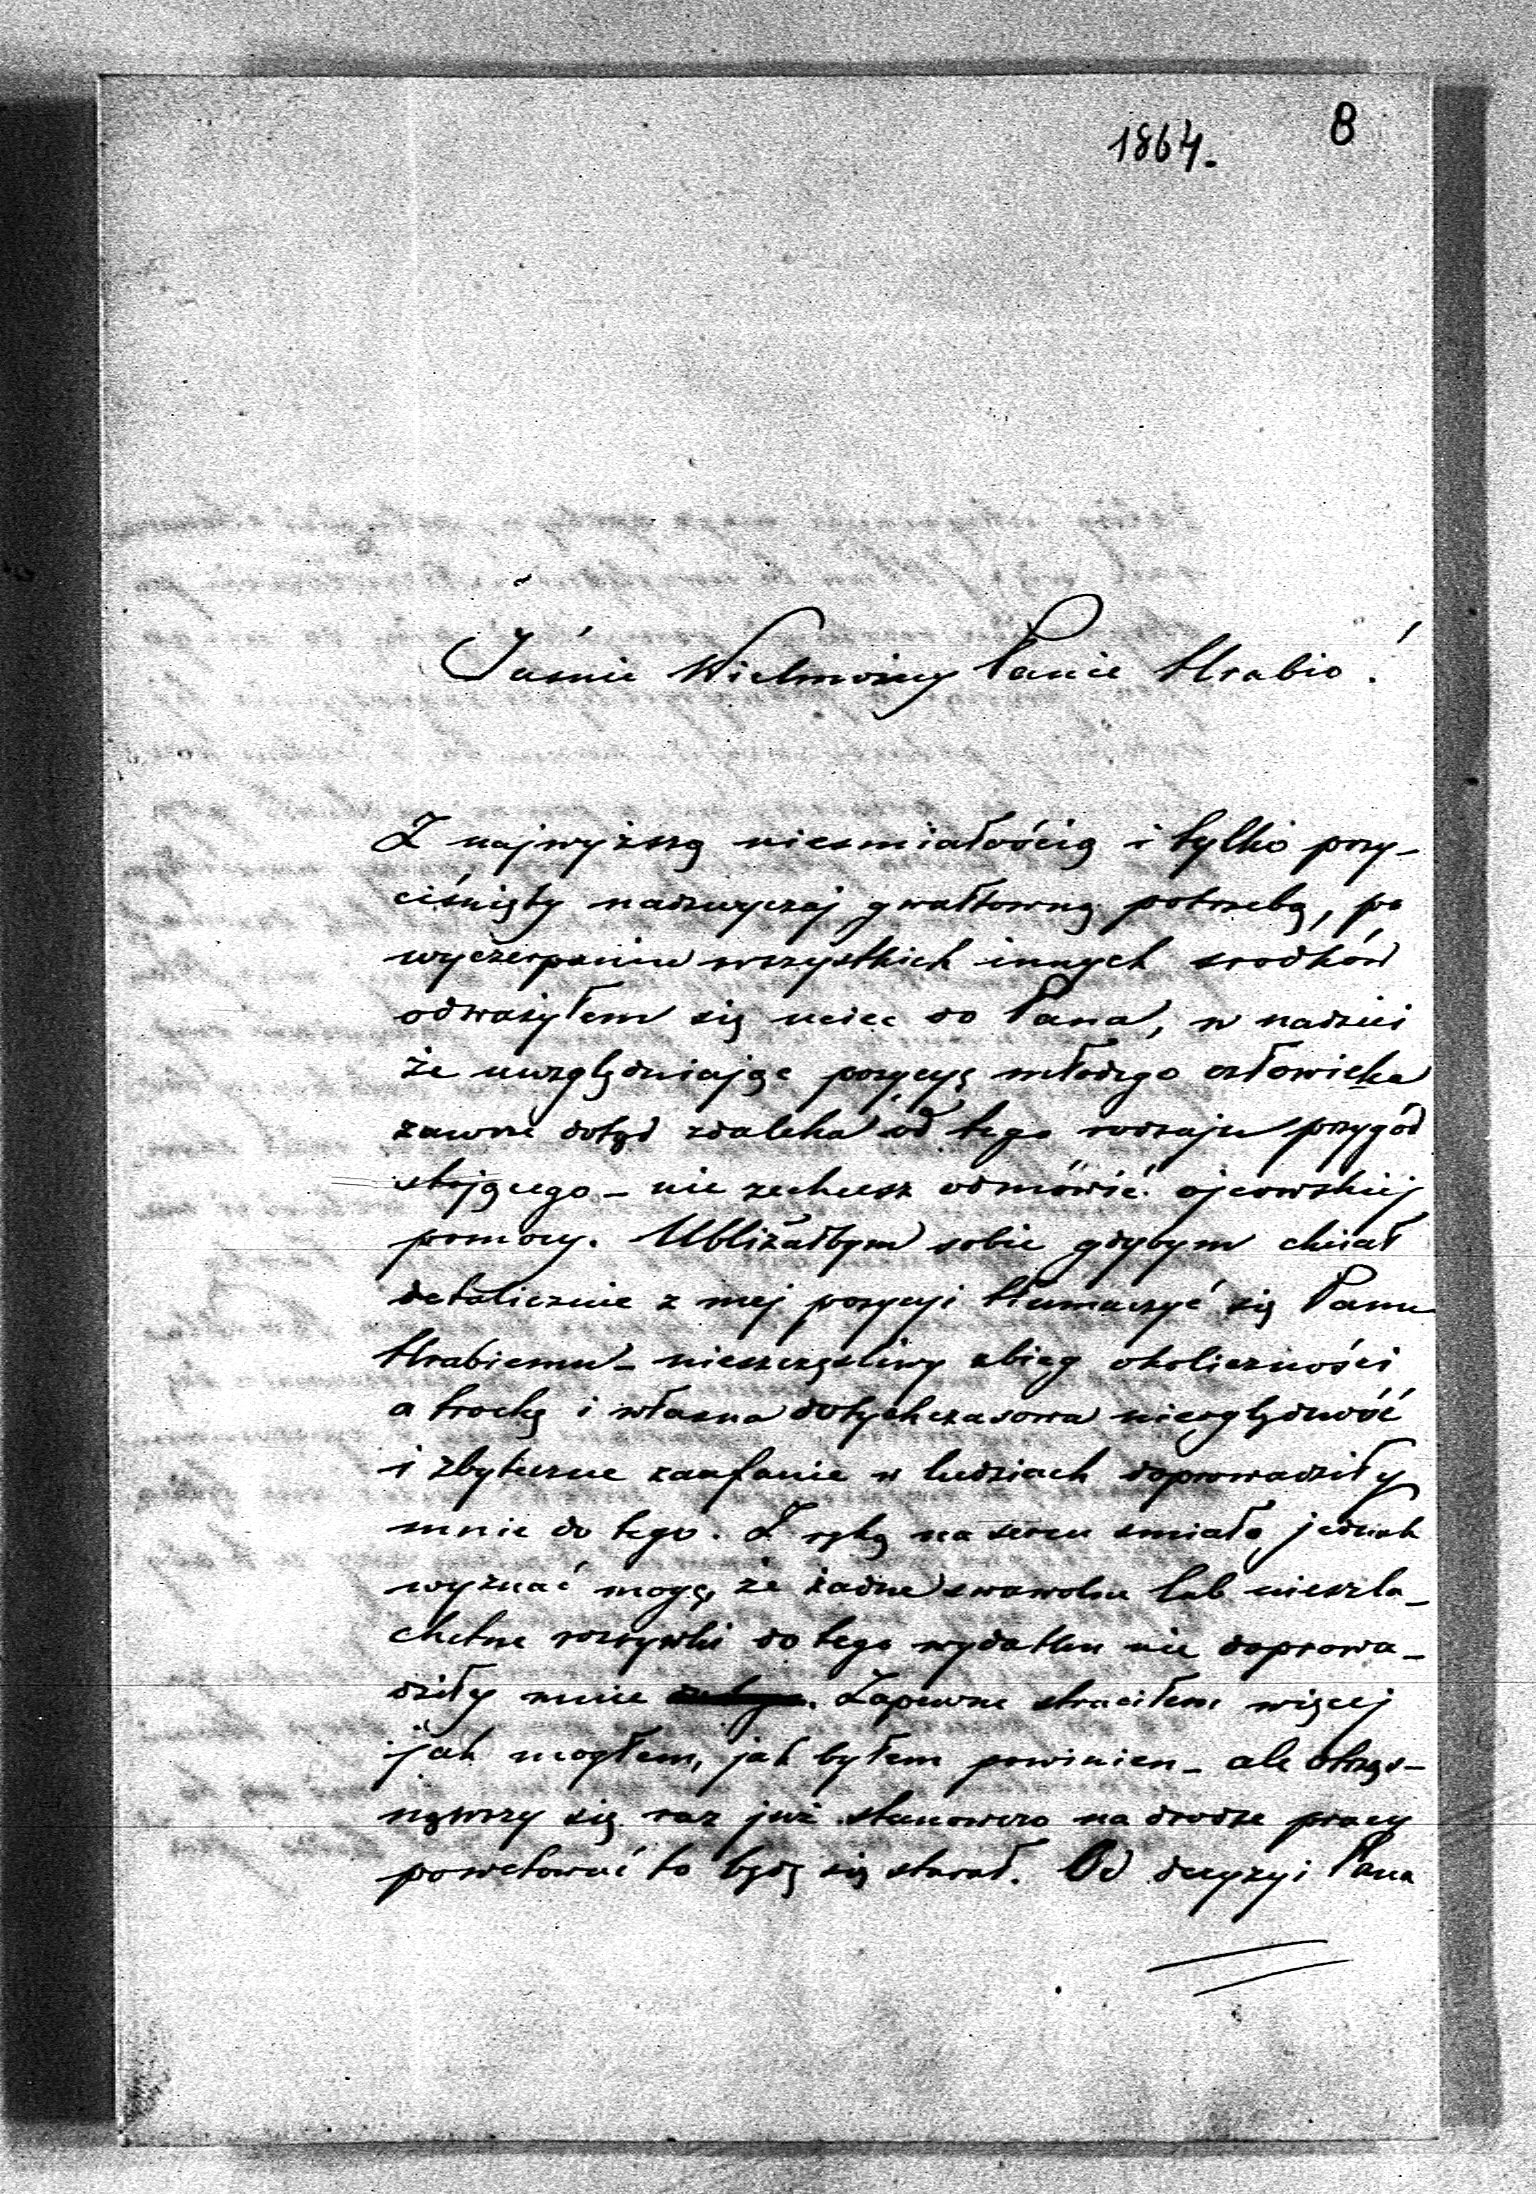 1864.
8
Jaśnie Wielmożny Panie Hrabio!
Z najwyższą niesmiałością i tylko przy-
ciśnięty nadzwyczaj gwałtowną potrzebą, po
wyczerpaniu wszystkich innych srodków
odważyłem się uciec do Pana, w nadziei
że uwzględniając pozycyę młodego człowieka
zawsze dotąd zdaleka od tego rodzaju przygód
stojącego – nie zechcesz odmówić ojcowskiej
pomocy. Ubliżałbym sobie gdybym chciał
detalicznie z mej pozycyi tłumaczyć się Panu
Hrabiemu – nieszczęsliwy zbieg okoliczności
a trochę i własna dotychczasowa nieoględność
i zbyteczne zaufanie w ludziach doprowadziły
mnie do tego. Z ręką na sercu smiało jednak
wyznać mogę, że żadne swawolne lub nieszla-
chetne rozrywki do tego wydatku nie doprowa-
dziły mnie. Zapewne straciłem więcej
jak mogłem, jak byłem powinien – ale otrzą-
snąwszy się raz już stanowczo na drodze pracy
powetować to będę się starał. Od decyzyi Pana